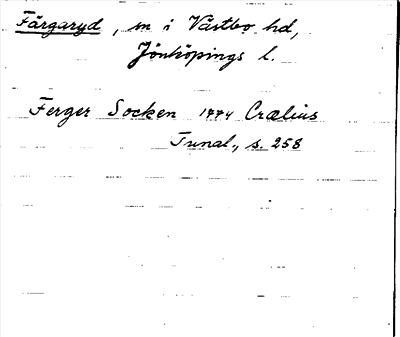 Färgaryd, sn i Västbo hd,
Jönköpings l.
Ferger Socken 1774 Crælius
Tunal., s. 258